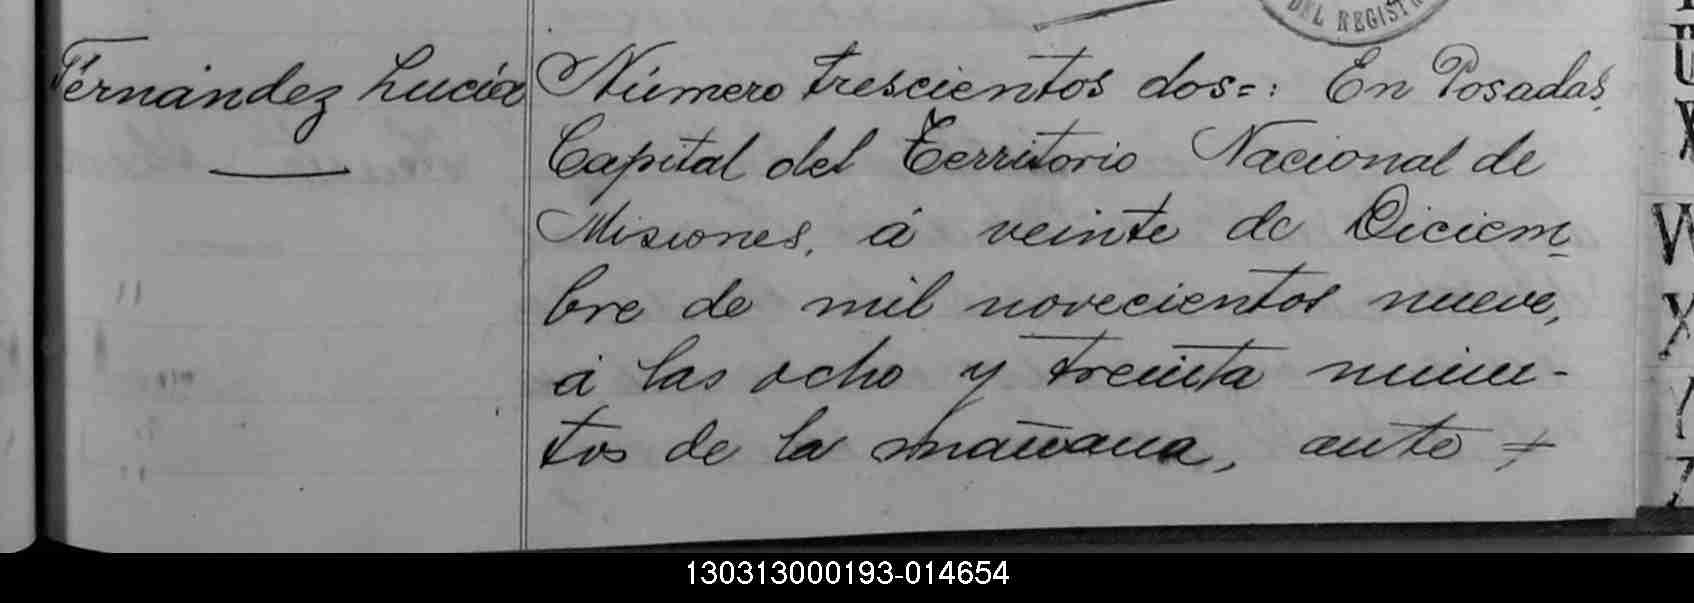 DEL REGISTR
Fernández Lucía
Número trescientos dos=: En Posadas,
Capital del Territorio Nacional de
Misiones, á veinte de Diciem
bre de mil novecientos nueve,
á las ocho y treinta minu-
tos de la mañana, ante
U
X
W
X
Z
130313000193-014654